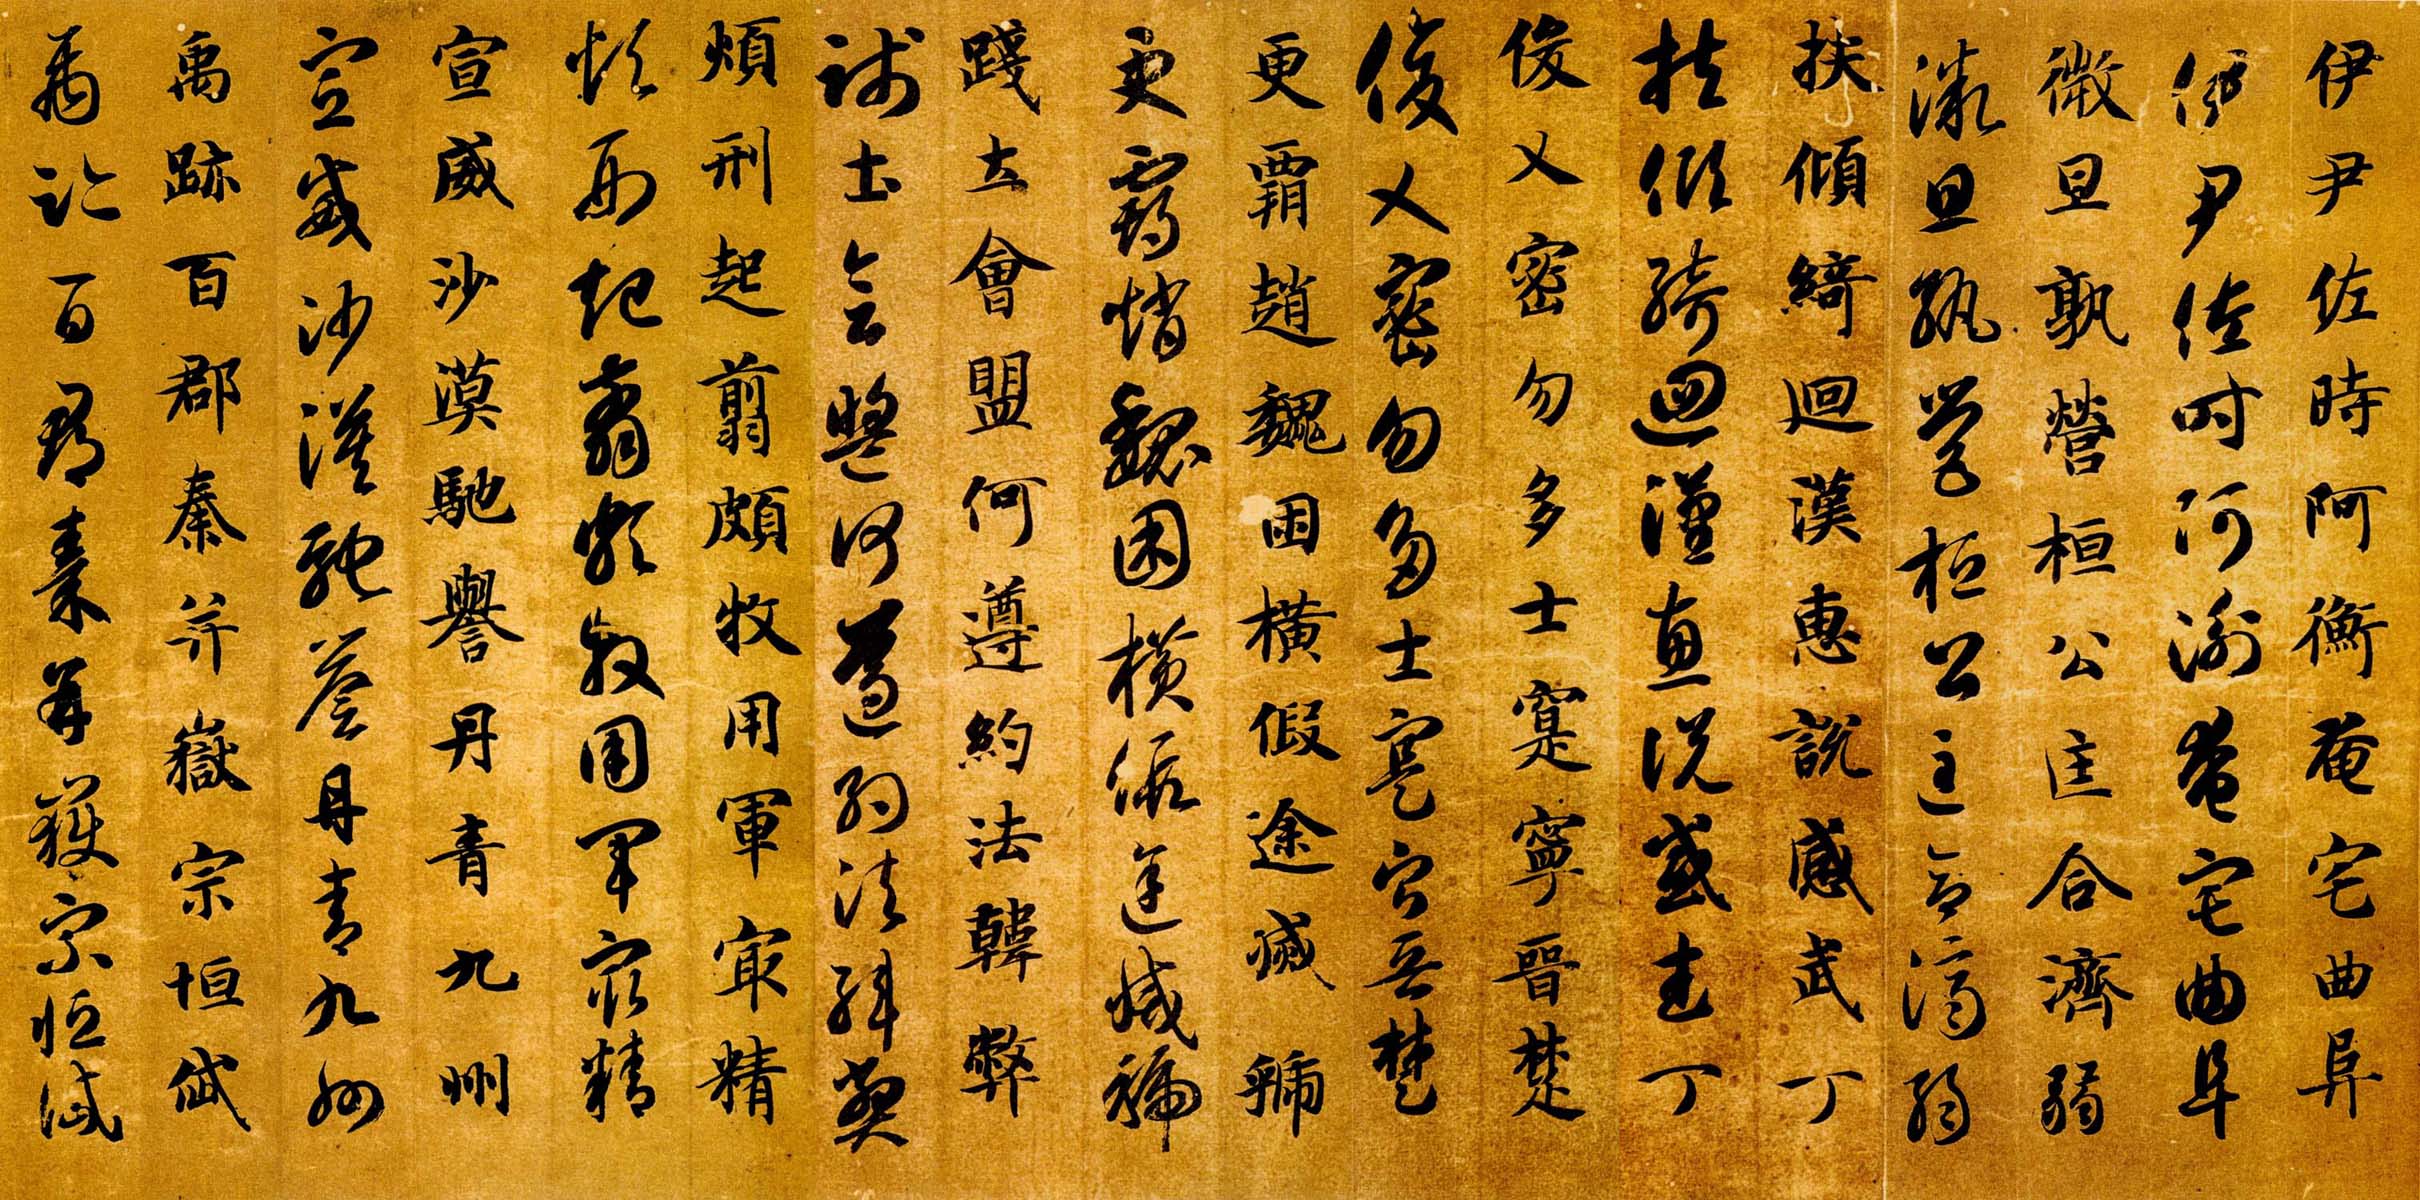 伊尹佐時阿衡奄宅曲阜
伊尹佐時阿衡奄宅曲阜
微旦孰營桓公匡合濟弱
微旦孰營桓公匡合濟弱
扶傾綺迴漢惠說感武丁
扶傾綺迴漢惠說感武丁
俊乂密勿多士寔寧晉楚
俊乂密勿多士寔寧晉楚
更霸趙魏困橫假途滅虢
更霸趙魏困橫假途滅虢
踐土會盟何遵約法韓弊
踐土會盟何遵約法韓弊
煩刑起翦頗牧用軍最精
煩刑起翦頗牧用軍最精
宣威沙漠馳譽丹青九州
宣威沙漠馳譽丹青九州
禹跡百郡秦并嶽宗恒岱
禹跡百郡秦并嶽宗恒岱